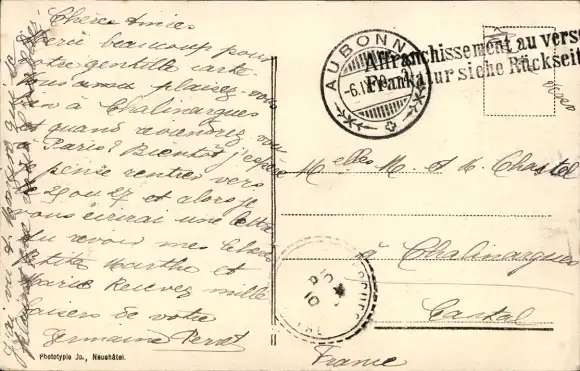 Chères Amies
Merci beaucoup pour
votre gentille carte
vous plaisez-vous
à Chalinargues
et quand reviendrez vous
Paris? Bientôt j'espère
je pense rentrer vers
25 ou 27 et alors je
vous écrirai une lettre
au revoir mes chères
petites Marthe et
Marie Recevez mille
baisers de votre
Germaine Perret
AUBONNE
Affranchissement au verso
Frankatur siche Rückseite
Melles M. et M. Chastel
à Chalinargues
Cantal
France
Phototypie Jo., Neuchâtel.